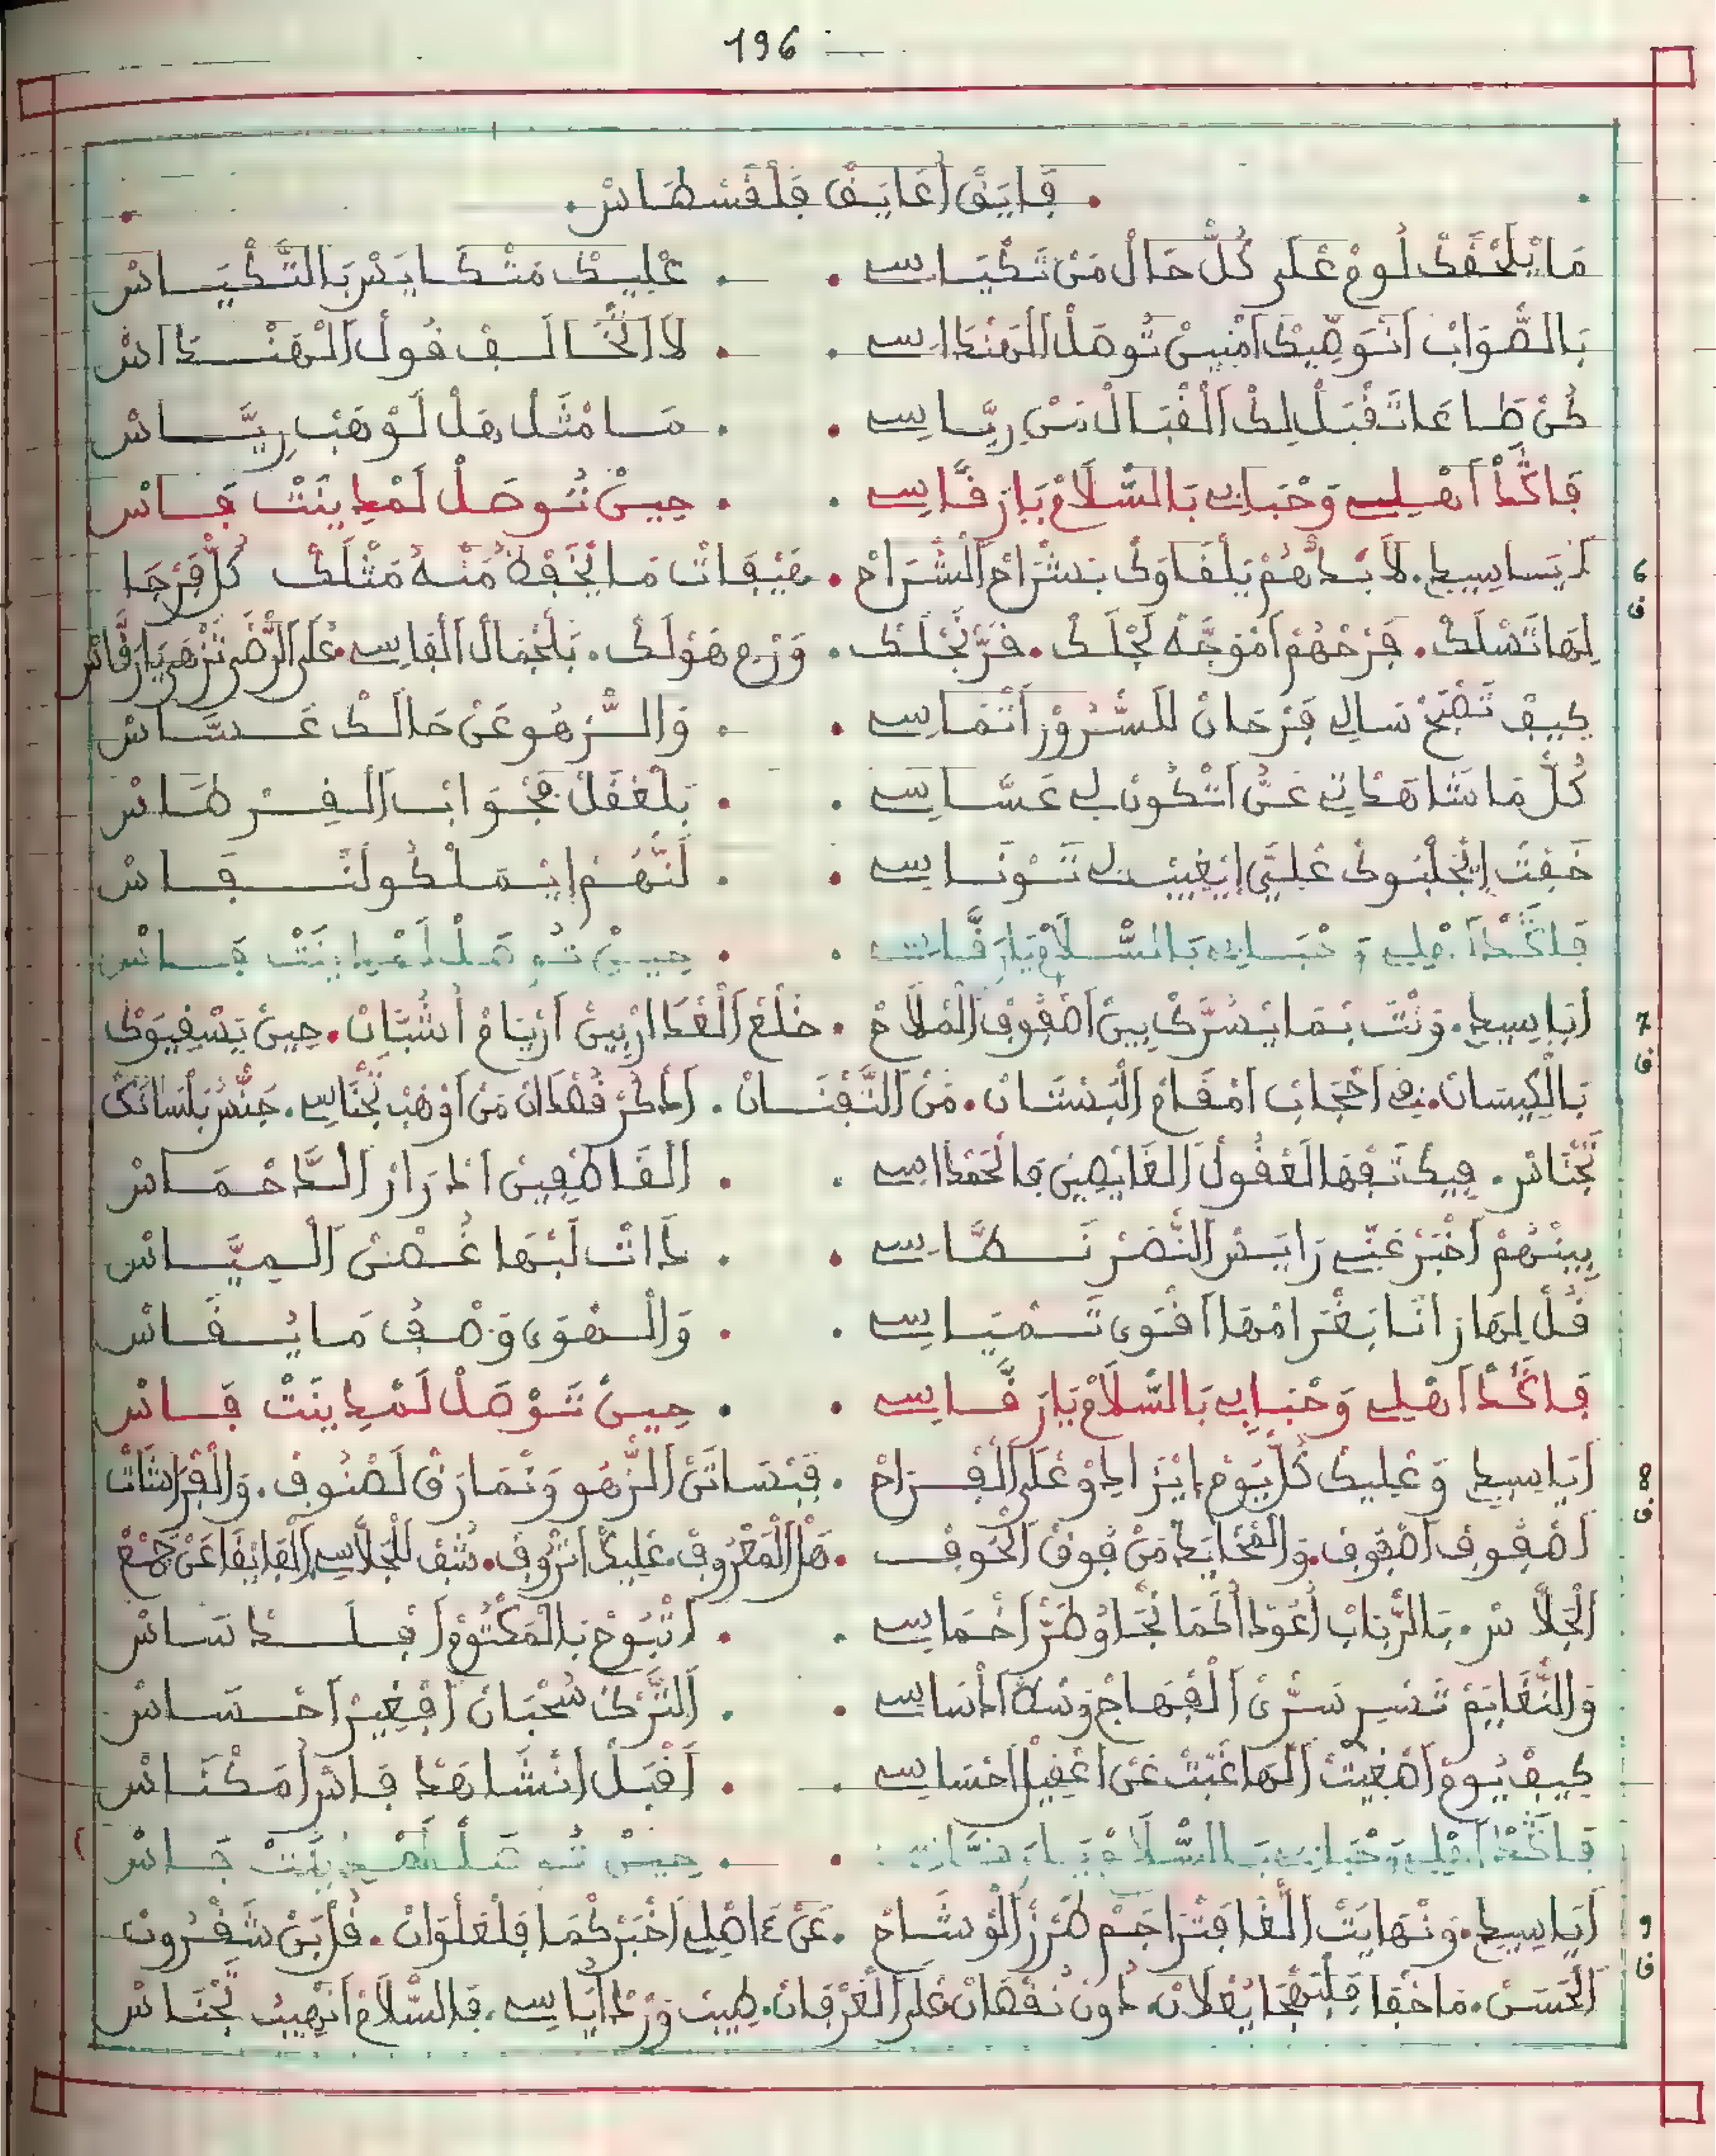 196
فَايَقْ أَعَايَقْ فَلْقَسْطَاسْ
مَا يْلَحْقَكْ لُومْ عْلَى كُلّْ حَالْ مَنْ تَكْيَاسِي . عْلِيكْ مَتْكَايَسْ بَالتَّكْيَاسْ
بَالصّْوَابْ انْوَصِّيكْ امْنِينْ تُوصَلْ الْهَنْدَاسِي . لَا اتْخَالَفْ قُولْ الْهَنْدَاسْ
كُنْ طَاعَا تَقْبَلْ لِكْ الْقْبَالْ مَنْ رِيَّاسِي . مَا مْثَلْ هَلْ لَوْهَبْ رِيَّاسْ
فَاكَّدْ أَهْلِي وَحْبَابِي بَالسّْلَامْ يَا رَقَّاسِي . حِينْ تُوصَلْ لَمْدِينَتْ فَاسْ
6 أَيَا سِيدِي . لَابَدّْهُمْ يَلْقَاوَكْ بَنْشْرَاحْ الشّْرَاحْ . هَيْفَاتْ مَا يْخَفْفْ مَنْهُ مَثْلَكْ كُلّْ فَرْجَا
ف
لِهَا تَسْلَكْ . فَرْحْهُمْ امْوَجَّهْ لَجْلَكْ . فَرّْجْلَكْ . وَرْحْ هَوْلَكْ . بَلْجْمَالْ الْفَاسِي . عْلَى الرّْضَى تَزْهَى يَا رَقَّاسْ
كِيفْ تَصْبَحْ سَالِي فَرْحَانْ لَلسّْرُورْ اتْمَاسِي . وَالزّْهُو عَنْ حَالَكْ عَسَّاسْ
كُلّْ مَا شَاهَدْتِي عَنُّ اتْكُونْ لِي عَسَّاسِي . بَلْعْقَلْ جْوَابْ الْفِرْطَاسْ
خَفْتْ إِيْجَلْبُوكْ عْلِيَّ إِيْغِيبْ لِي تَوْنَاسِي . لَنّْهُمْ إِيْمَلْكُو لَنْفَاسْ
فَاكَّدْ أَهْلِي وَحْبَابِي بَالسّْلَامْ يَا رَقَّاسِي . حِينْ تُوصَلْ لَمْدِينَتْ فَاسْ
7 أَيَا سِيدِي . وَنْتَ بَمَا يْسُرَّكْ بِينْ اصْفُوفْ الْمْلَاحْ . خْلَعْ الْعْدَارْ بِينْ ارْيَامْ أُشُبَّانْ . حِينْ يَسْقِيوَكْ
ف
بَالْكِيسَانْ . فِي احْجَابْ امْقَامْ الْبَسْتَانْ . مَنْ التَّفْتَانْ . اذْكُرْ قُصْدَانْ مَنْ اوْهَبْ تَجْنَاسِي . جَنّْسْ بَلْسَانَكْ
تَجْنَاسْ . فِيكْ تَفْهَا لَعْقُولْ الْغَايْصِينْ فَالْحَنْدَاسِي . الْقَاطْفِينْ ادْرَارْ الدَّاحْمَاسْ
بِينْهُمْ اخْبَرْ عَنِّي رَايَسْ النّْصَرْ نَطَّاسِي . ذَاتْ لَبْهَا غُصْنْ الْمِيَّاسْ
قُلْ لِهَا رَانَا بَغْرَامْهَا اقْوَى تَهْيَاسِي . وَالْهْوَى وَصْفُ مَا يُقَاسْ
فَاكَّدْ أَهْلِي وَحْبَابِي بَالسّْلَامْ يَا رَقَّاسِي . حِينْ تُوصَلْ لَمْدِينَتْ فَاسْ
8 أَيَا سِيدِي وَعْلِيكْ كُلّْ يُومْ إِيْزَادُو عْلَى الْفْرَاحْ . فَبْسَاتَنْ الزّْهُو وَنْمَارَقْ لَصْنُوفْ . وَالْفْرَاشَاتْ
ف
اصْفُوفْ اصْفُوفْ . وَالْمْحَايَدْ مَنْ فُوقْ الْحُوفْ . هَلْ الْمَعْرُوفْ . عْلِيكْ اتْرُوفْ . شَفْ لَلْجْلَّاسِي الْفَايْقَا عَنْ جَمْعْ
الْجْلَّاسْ . بَالرّْبَابْ أُعُودْ اكْمَانْجَا وْطَرّْ اخْمَاسِي . اتْبُوحْ بَالْمَكْتُومْ افْلَدْسَاسْ
وَالنّْغَايَمْ تَسْرِي سَرّْ الْفْهَاجْ وْسْطْ ادْسَاسِي . التّْرَكْ سُحْبَانْ افْغِيرْ احْسَاسْ
كِيفْ يُومْ اصْغِيتْ الْهَا غَبْتْ عَنْ اعْقِيلْ احْسَاسِي . اقْبَلْ انْشَاهَدْ فَاسْ أُمَكْنَاسْ
فَاكَّدْ أَهْلِي وَحْبَابِي بَالسّْلَامْ يَا رَقَّاسِي . حِينْ تُوصَلْ لَمْدِينَتْ فَاسْ
9 أَيَا سِيدِي . وَنْهَايَتْ اللّْغَا فَتْرَاجَمْ طَرْزْ الْوْشَاحْ . عَنْ اصْلِي اخْبَرْكُمَا فَلْعَلْوَانْ . قُلْ بَنْ شَقْرُونْ
ف
الْحَسَنْ . مَا خْفَا فَلْبْهَجَا يُعْلَانْ . دُونْ نُقْصَانْ عْلَى الْعَرْفَانْ . طِيبْ وَرْدْ ايَاسِي . فَالسّْلَامْ انْهِيبْ تَجْنَاسْ